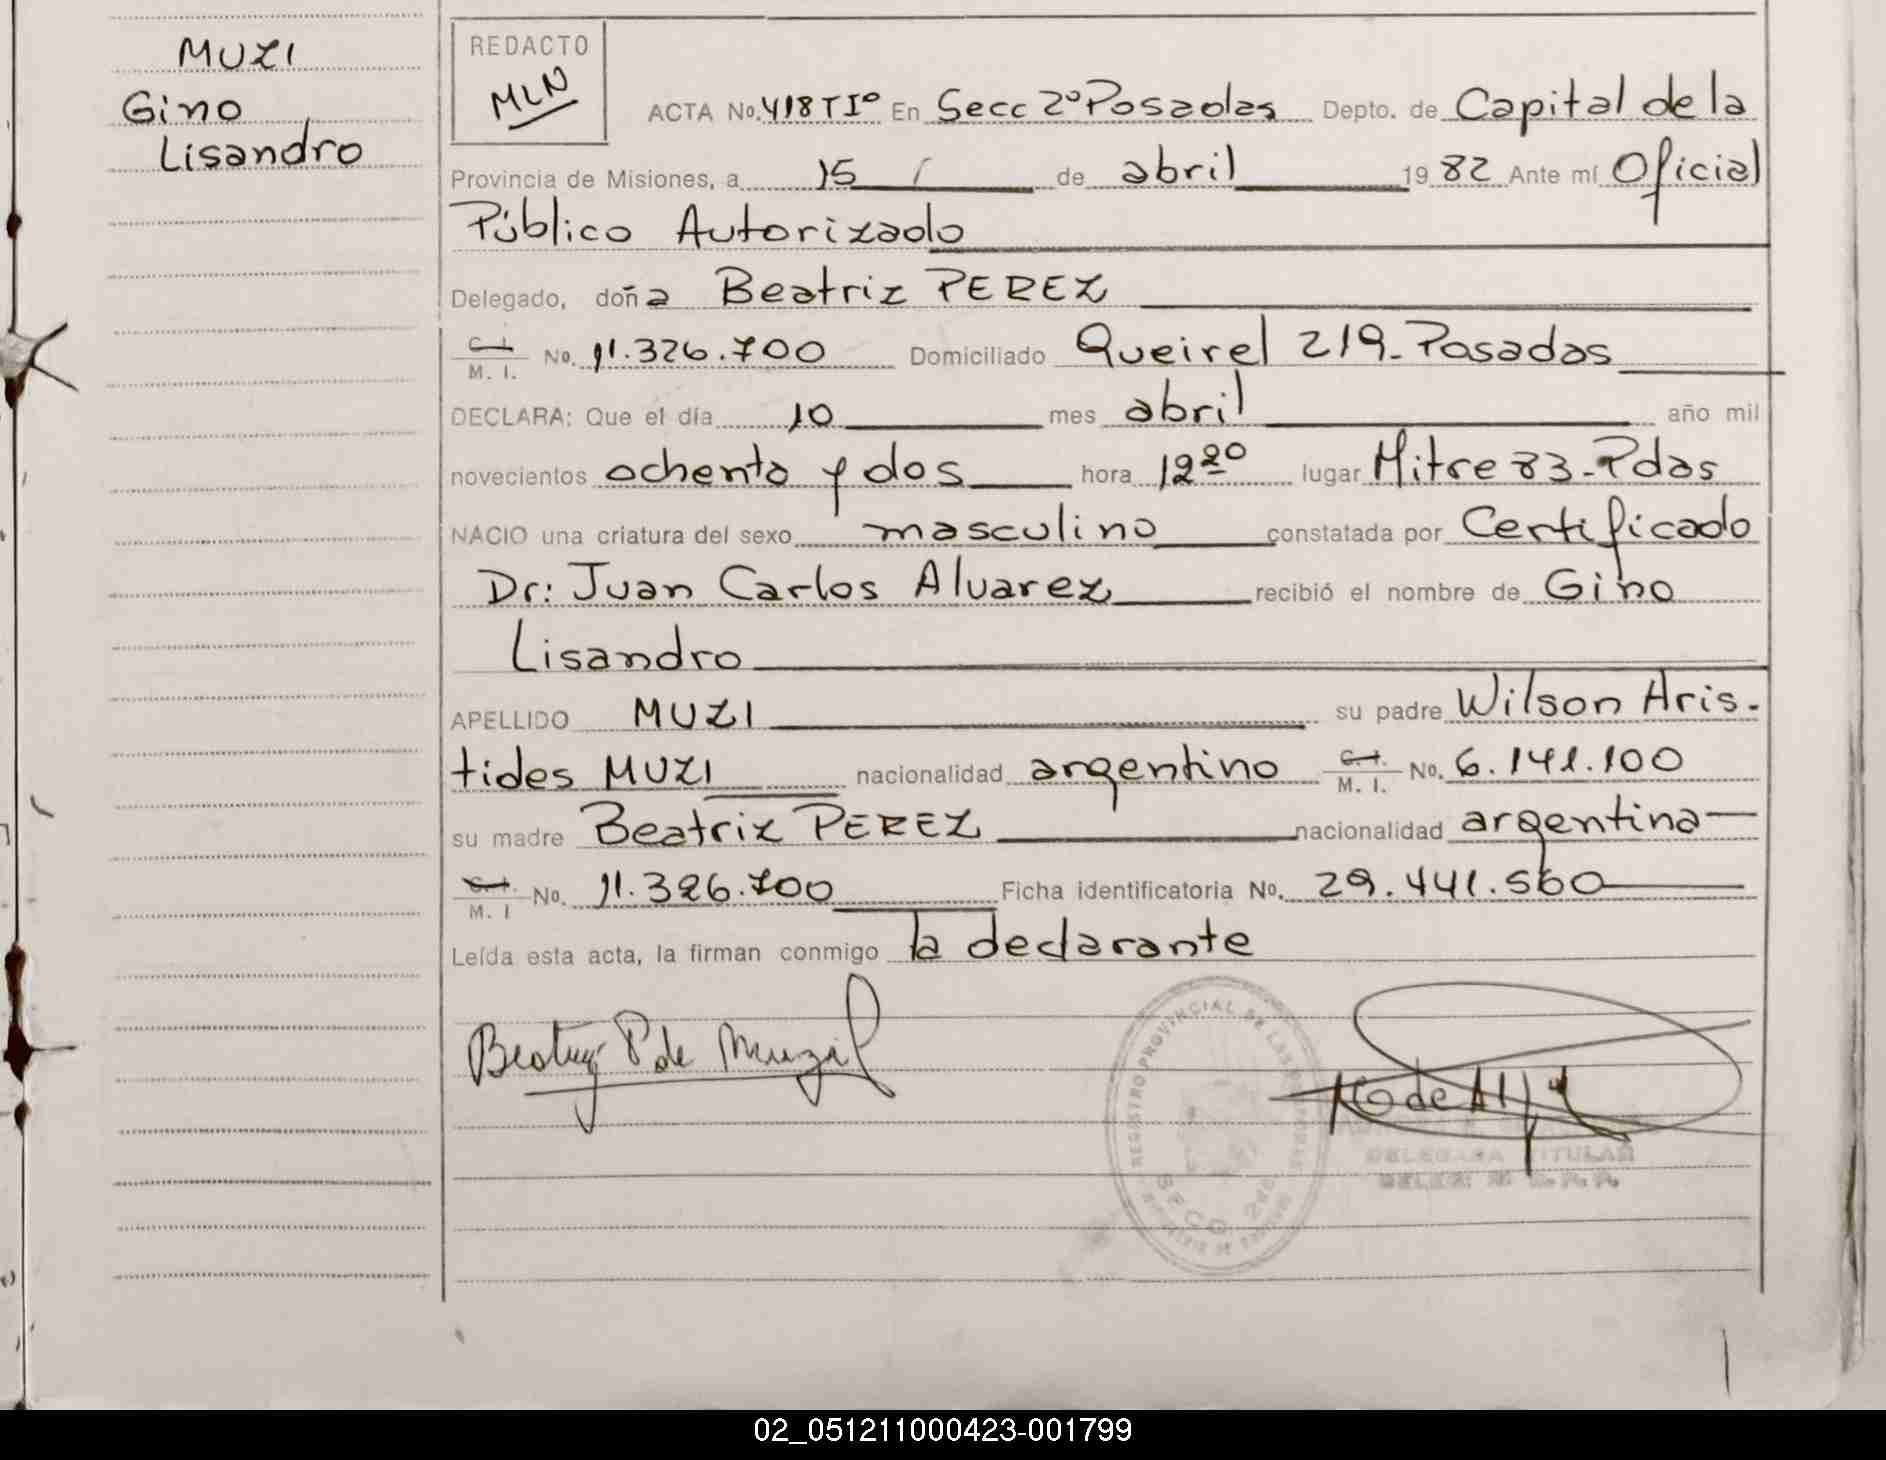 MUZI
Gino
Lisandro
REDACTO
MLN
ACTA No. 418 TIº En Secc 2º Posadas Depto. de Capital de la
Provincia de Misiones, a 15 de abril 1982 Ante mí Oficial
Público Autorizado
Delegado, doña Beatriz PEREZ
C. I. / M. I. No. 11.326.700 Domiciliado Queirel 219-Posadas
DECLARA: Que el día 10 mes abril año mil
novecientos ochenta y dos hora 12 20 lugar Mitre 83-Pdas
NACIO una criatura del sexo masculino constatada por Certificado
Dr: Juan Carlos Alvarez recibió el nombre de Gino
Lisandro
APELLIDO MUZI su padre Wilson Aris-
tides MUZI nacionalidad argentino C. I. / M. I. No. 6.141.100
su madre Beatriz PEREZ nacionalidad argentina
C. I. / M. I No. 11.326.700 Ficha identificatoria No. 29.441.560
Leída esta acta, la firman conmigo la declarante
Beatriz P de Muzi
REGISTRO PROVINCIAL DE LAS PERSONAS
SECC. 2da
DELEGADA TITULAR
02_051211000423-001799